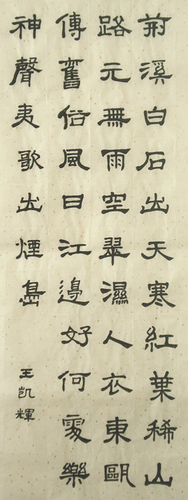 荊溪白石出天寒紅葉稀山
路元無雨空翠濕人衣東甌
傳舊俗風日江邊好何處樂
神聲夷歌出煙島
王凱輝